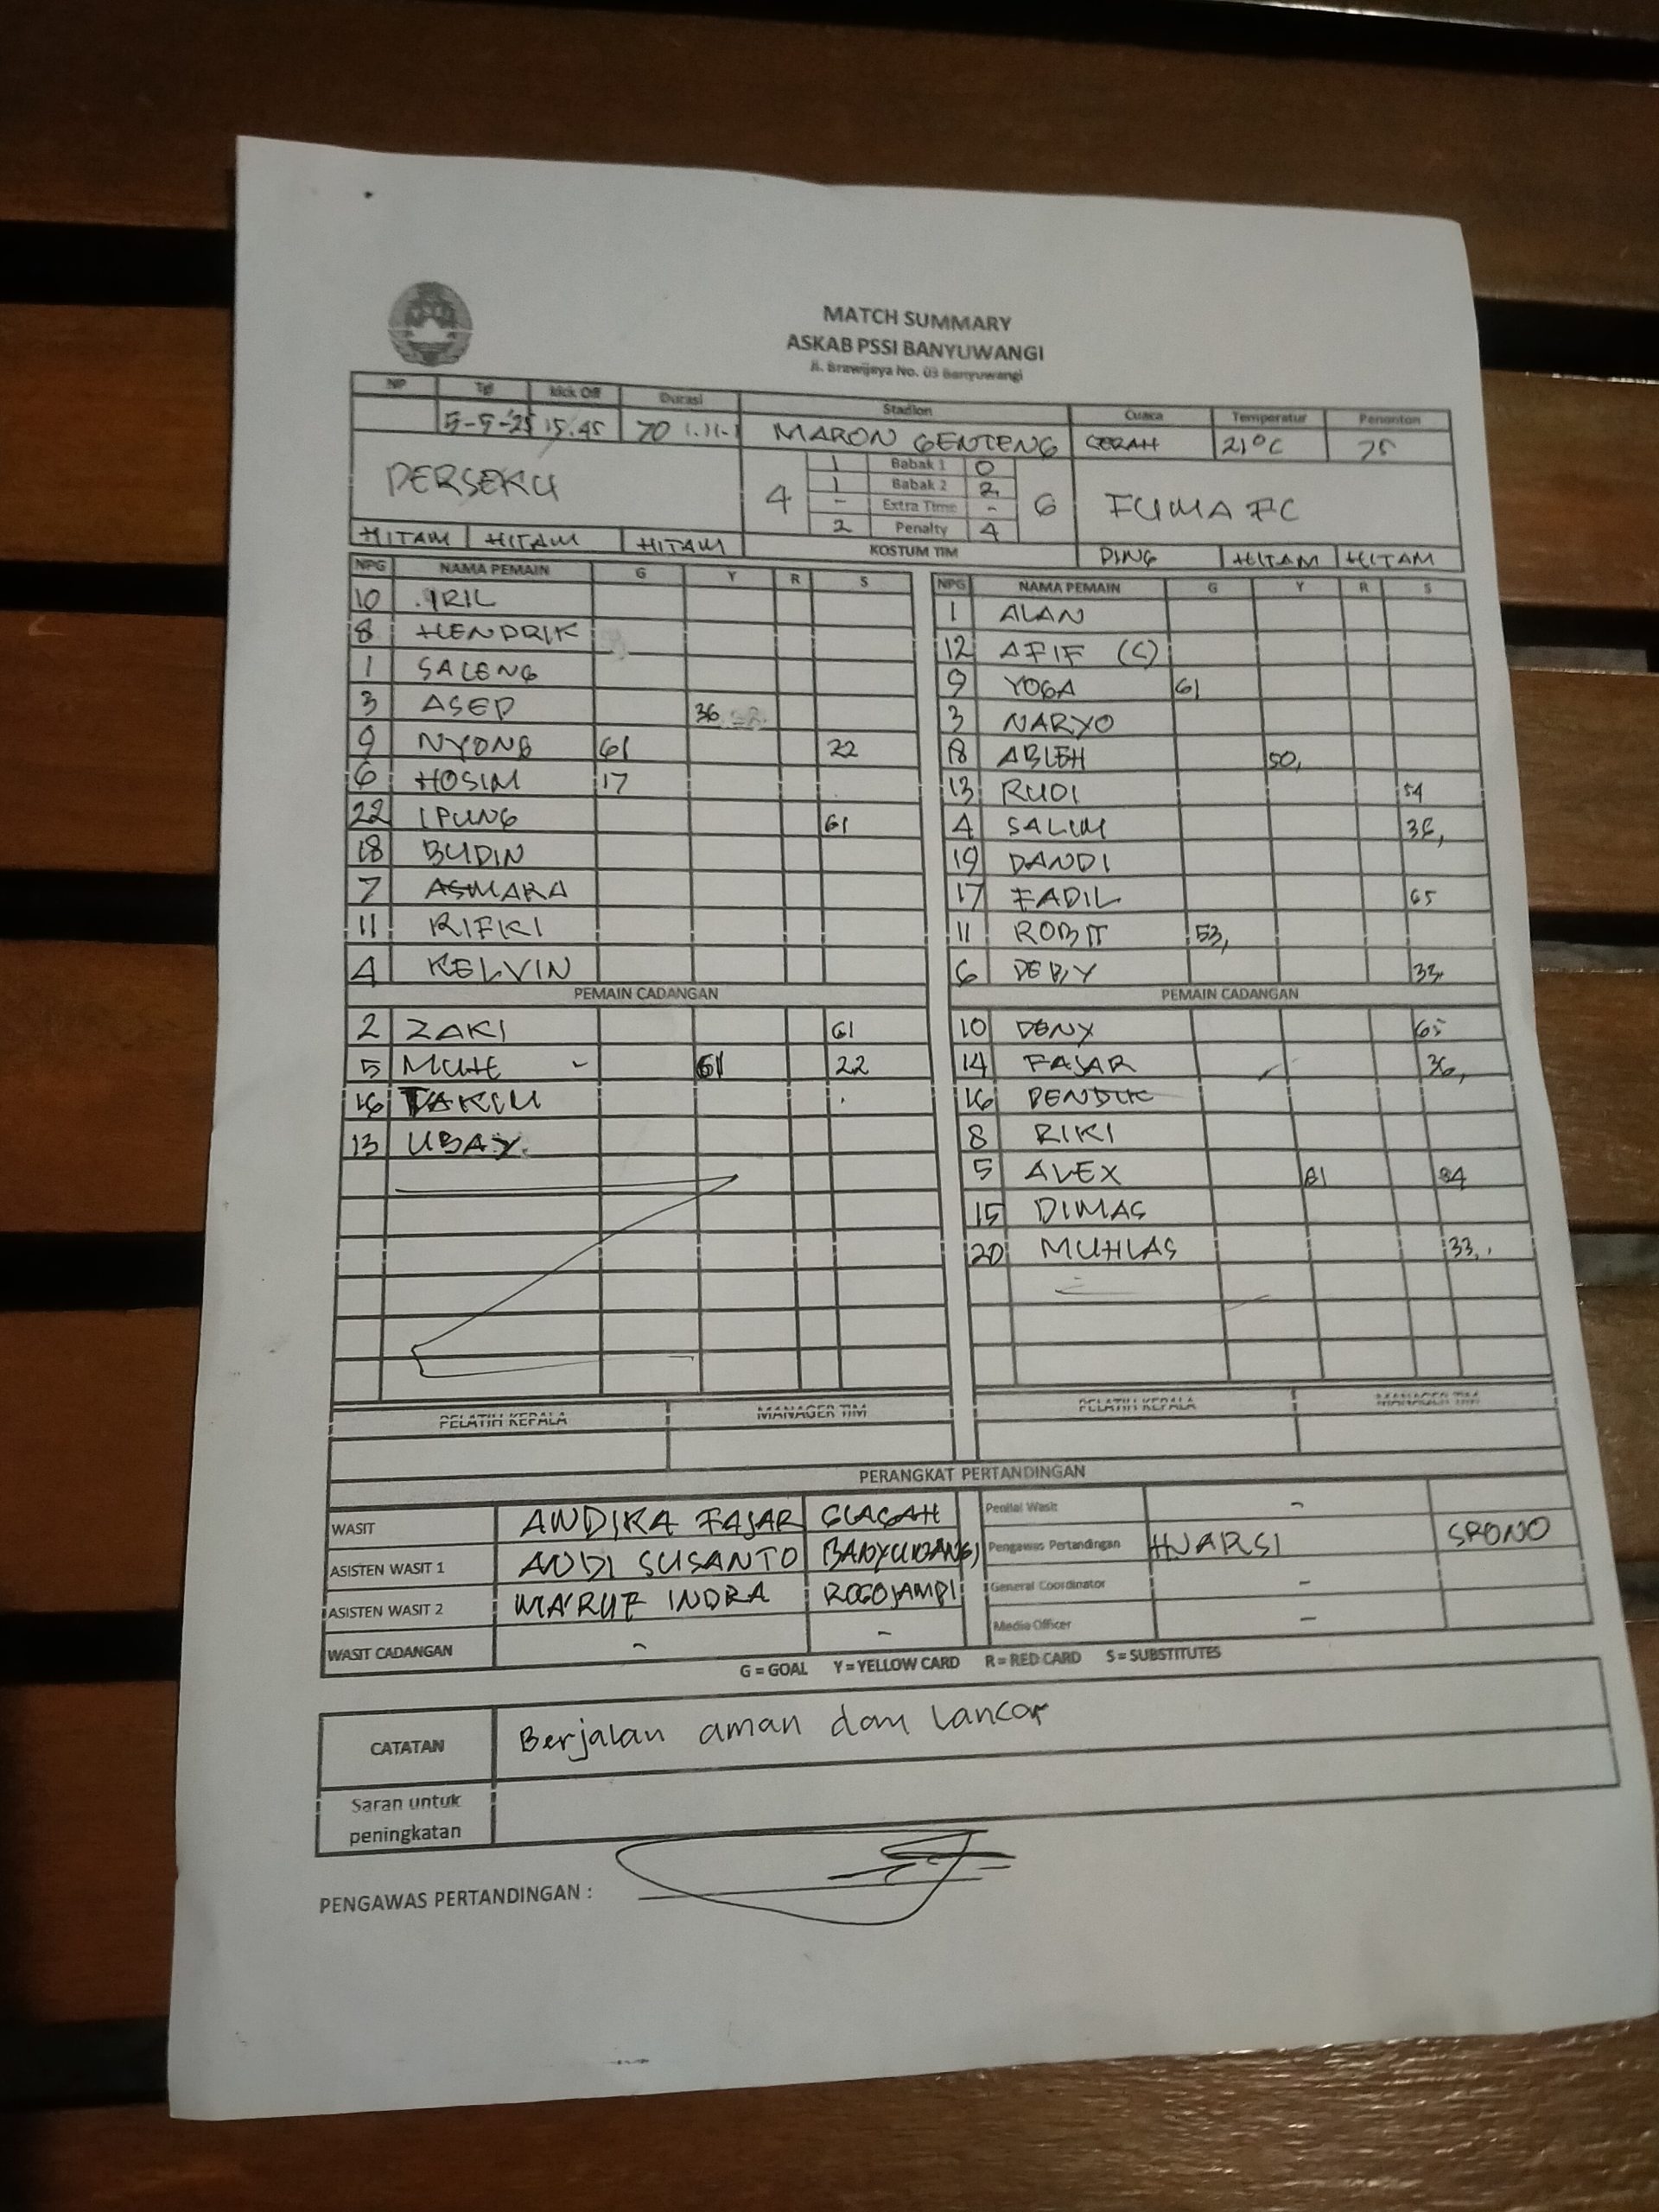 MATCH SUMMARY
ASKAB PSSI BANYUWANGI
Jl. Brawijaya No. 03 Banyuwangi
NP Tgl Kick Off Durasi Stadion Cuaca Temperatur Penonton
5-5-'25 15.45 70 MARON GENTENG CERAH 21°C 75
PERSEKU 4 1 Babak 1 0 6 FUMA FC
1 Babak 2 2
- Extra Time -
2 Penalty 4
HITAM HITAM HITAM KOSTUM TIM PING HITAM HITAM
NPG NAMA PEMAIN G Y R S NPG NAMA PEMAIN G Y R S
10 IRIL 1 ALAN
8 HENDRIK 12 AFIF (C)
1 SALENG 9 YOGA 61
3 ASEP 36 3 NARYO
9 NYONG 61 22 18 ABLEH 50,
6 HOSIM 17 13 RUDI 54
22 IPUNG 61 4 SALIM 36,
18 BUDIN 19 DANDI
7 ASMARA 17 FADIL 65
11 RIFKI 11 ROBIT 53,
4 KELVIN 6 DEBY 33,
PEMAIN CADANGAN PEMAIN CADANGAN
2 ZAKI 61 10 DENY 65
5 MUHE - 61 22 14 FAJAR 36,
16 16 PENDUK
13 UBAY. 8 RIKI
5 ALEX
15 DIMAS
20 MUHLAS 33,
PELATIH KEPALA MANAGER TIM PELATIH KEPALA MANAGER TIM
PERANGKAT PERTANDINGAN
WASIT ANDIKA FAJAR GLAGAH Penilai Wasit -
ASISTEN WASIT 1 ANDI SUSANTO BANYUWANGI Pengawas Pertandingan HJARSI SRONO
ASISTEN WASIT 2 MA'RUF INDRA ROGOJAMPI General Coordinator -
WASIT CADANGAN - - Media Officer -
G = GOAL Y = YELLOW CARD R = RED CARD S = SUBSTITUTES
CATATAN Berjalan aman dan lancar
Saran untuk
peningkatan
PENGAWAS PERTANDINGAN :